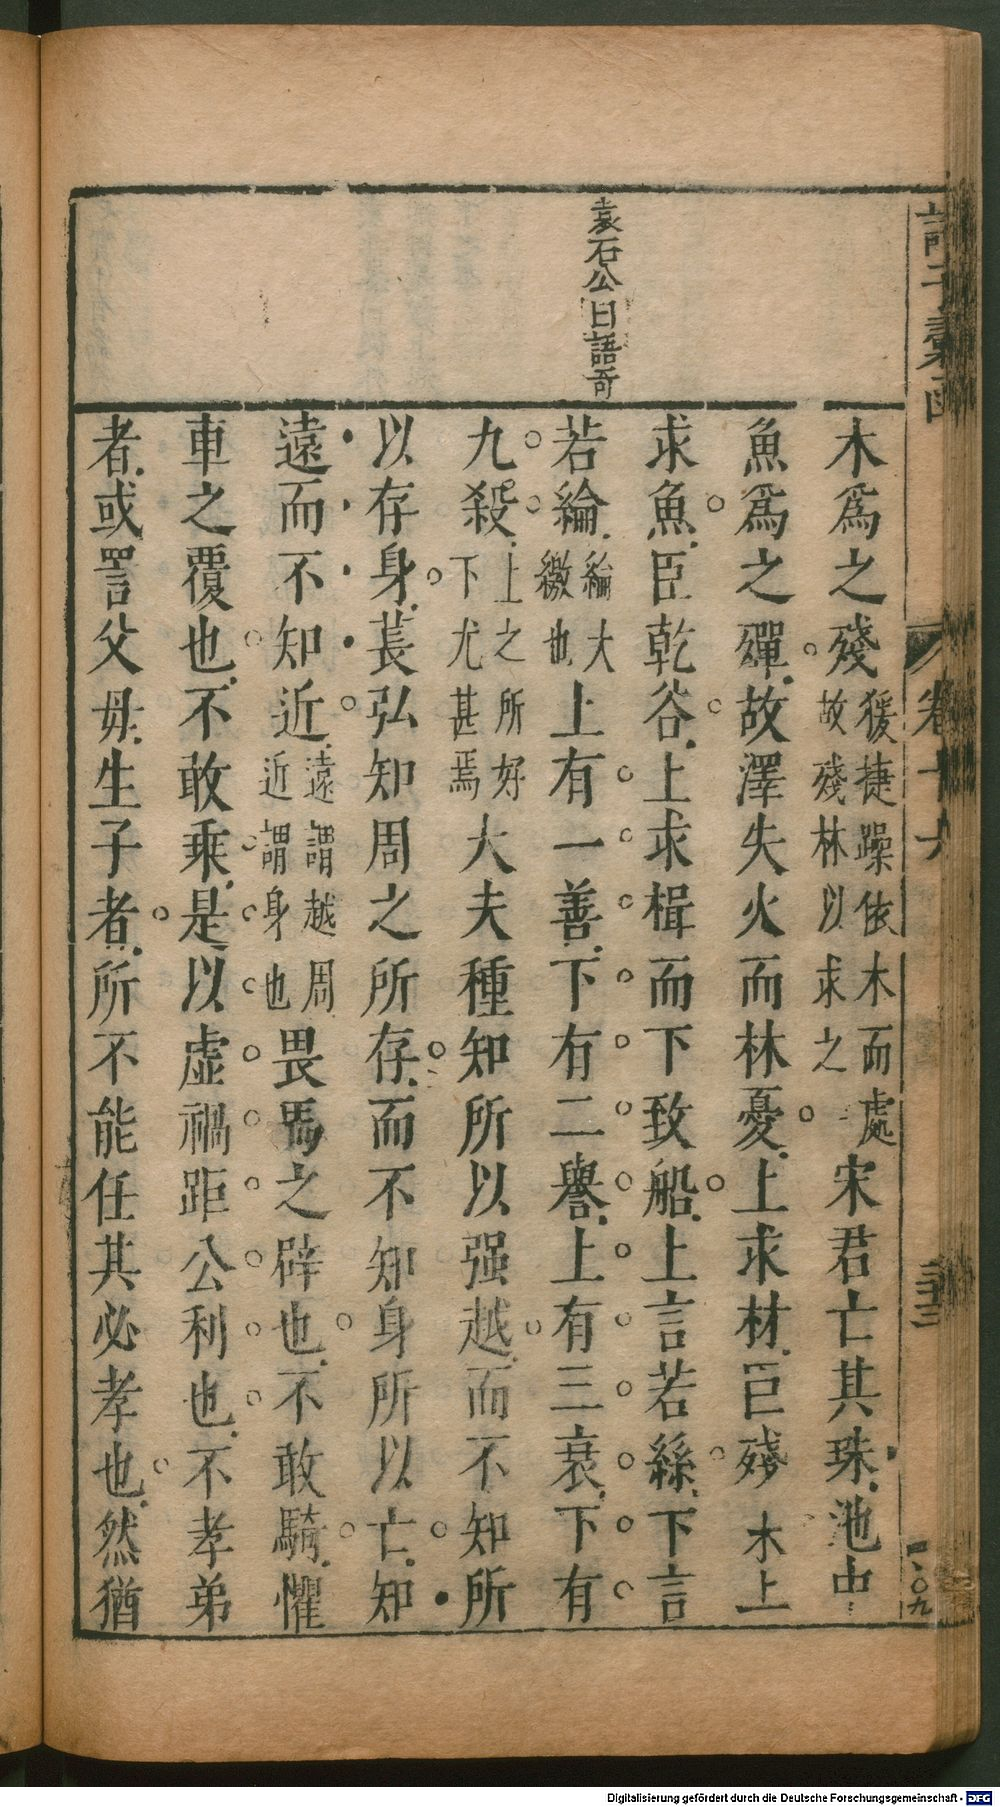 木爲之殘猨捷躁依木而處故殘林以求之宋君亡其珠池中
魚爲之殫故澤失火而林憂上求材臣殘木上
求魚臣乾谷上求楫而下致船上言若絲下言
若綸綸大繳也上有一善下有二譽上有三衰下有
九殺上之所好下尤甚焉大夫種知所以强越而不知所
以存身萇弘知周之所存而不知身所以亡知
遠而不知近遠謂越周近謂身也畏馬之辟也不敢騎懼
車之覆也不敢乘是以虛禍距公利也不孝弟
者或詈父母生子者所不能任其必孝也然猶
袁石公曰語奇
諸子彙函
卷十六
三十三
一〇九
Digitalisierung gefördert durch die Deutsche Forschungsgemeinschaft - DFG